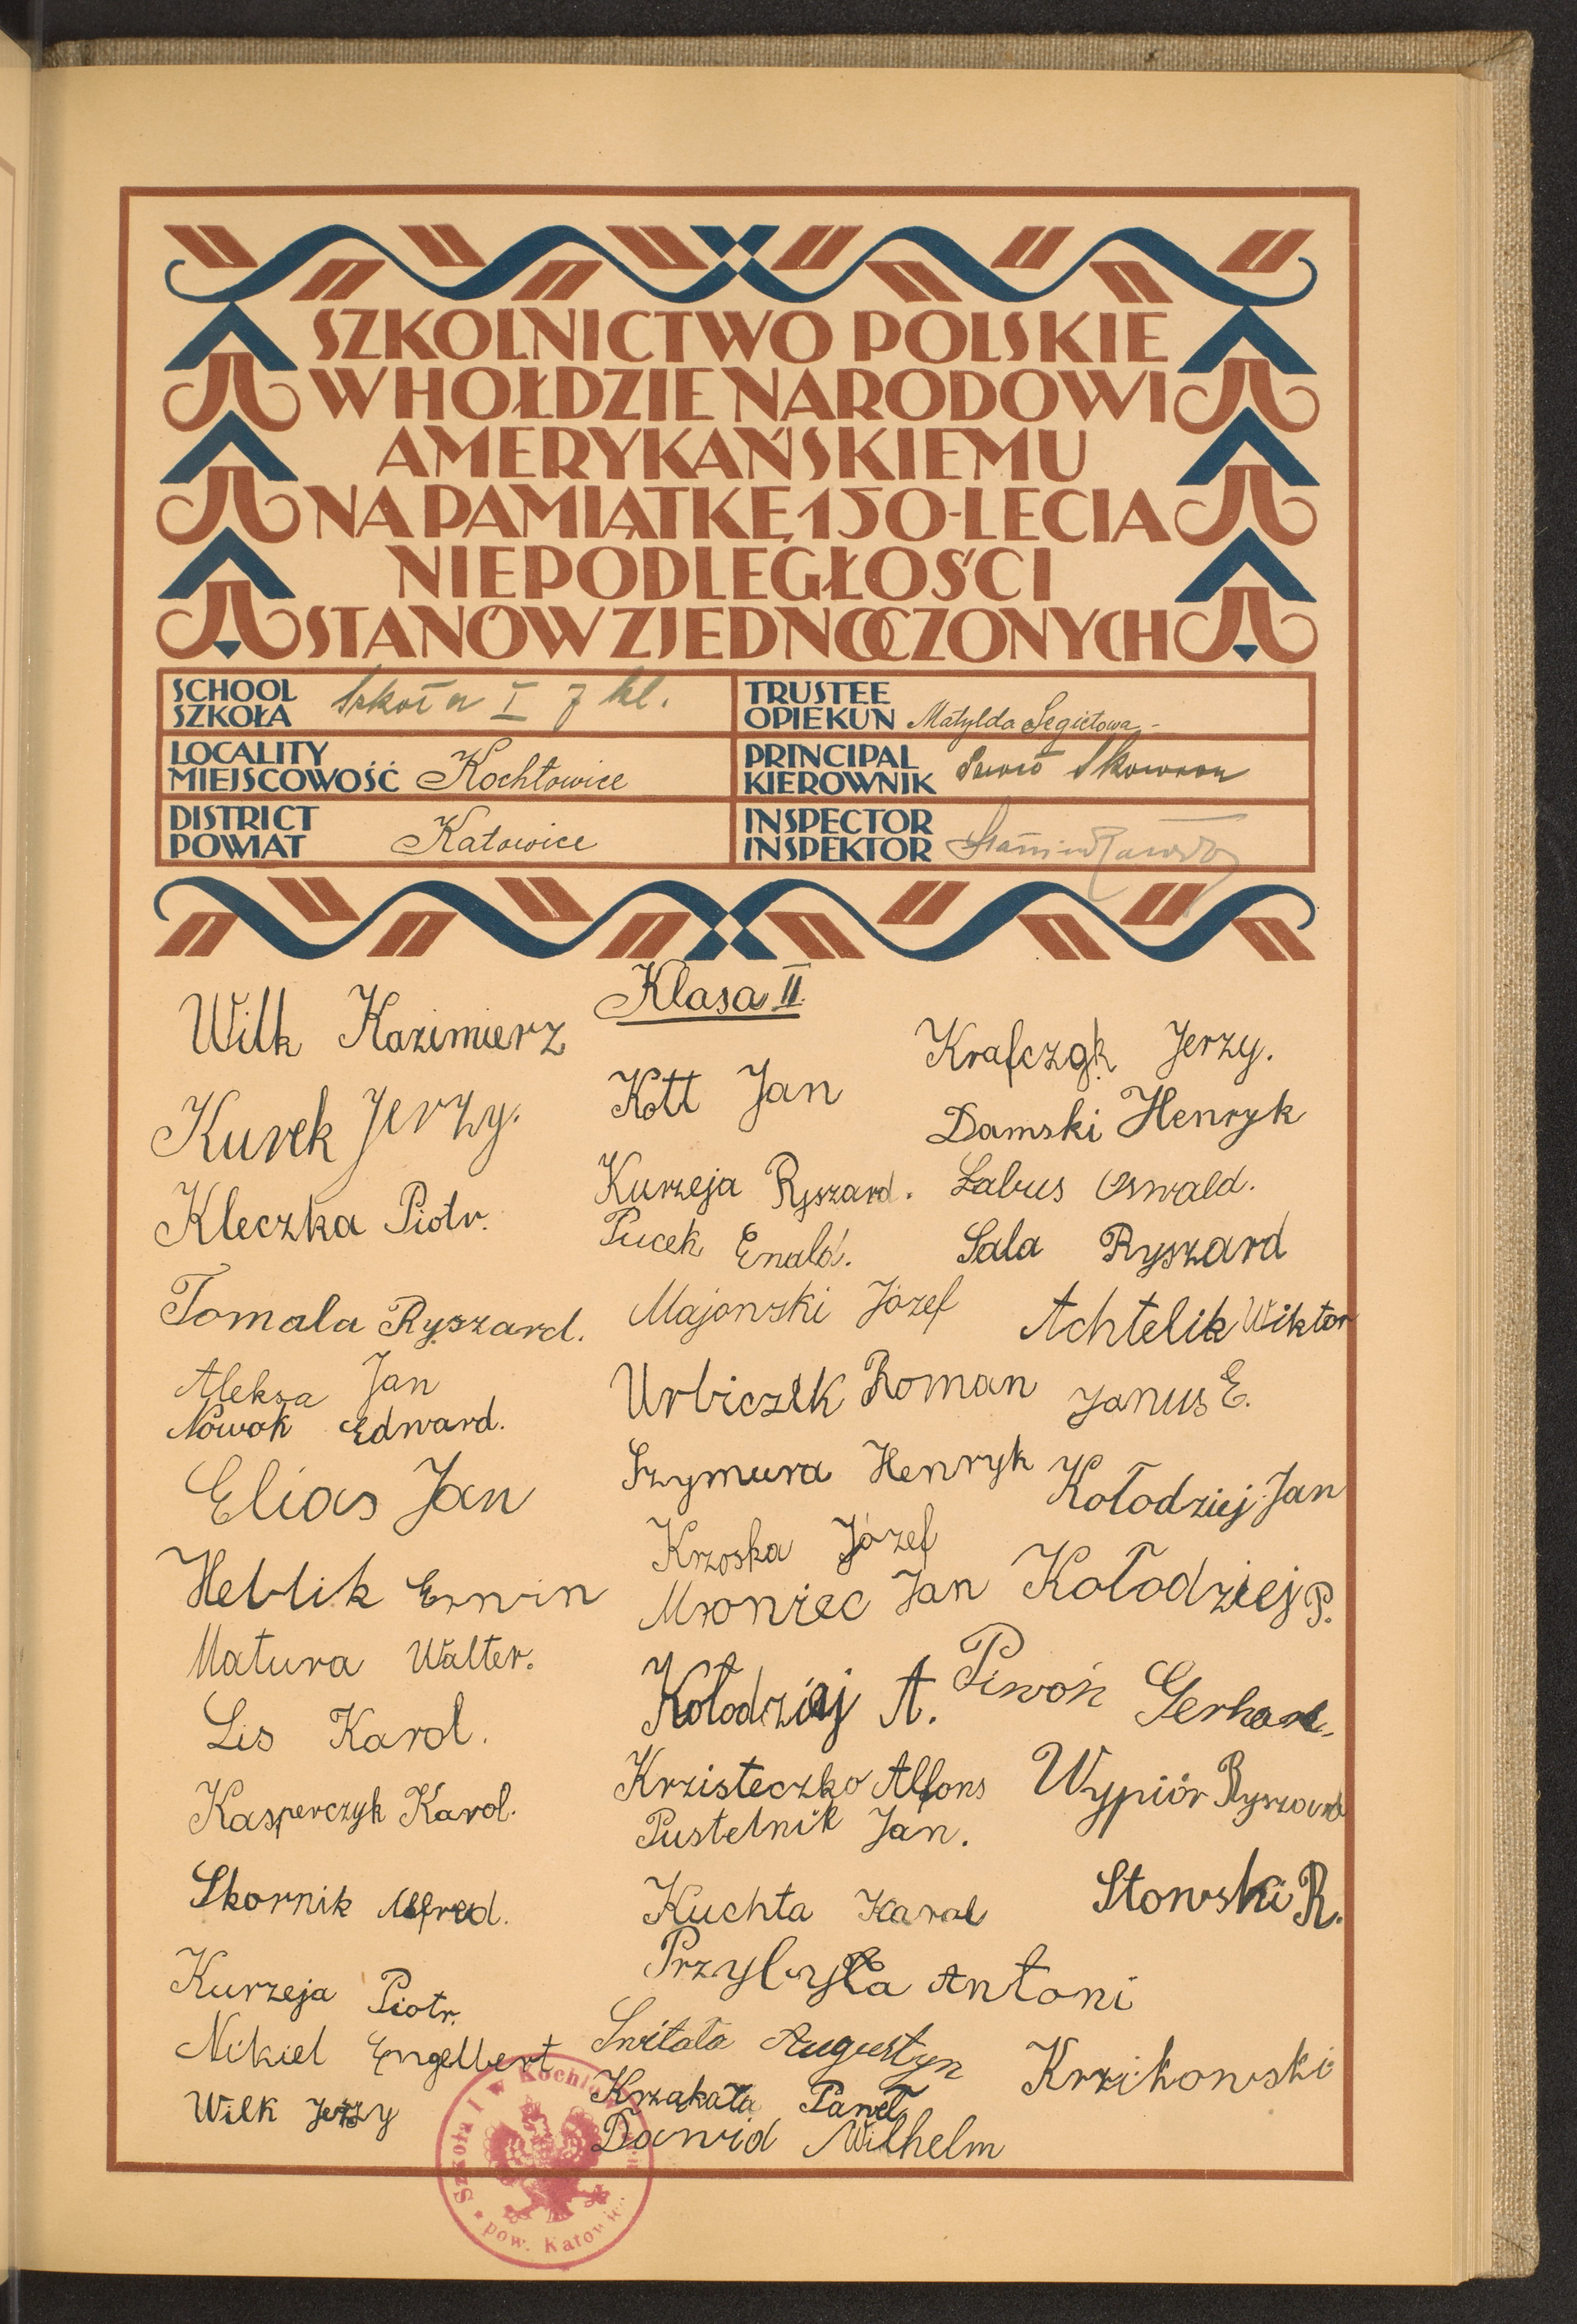 SZKOLNICTWO POLSKIE
W HOŁDZIE NARODOWI
AMERYKAŃSKIEMU
NA PAMIĄTKĘ 150-LECIA
NIEPODLEGŁOŚCI
STANÓW ZJEDNOCZONYCH
SCHOOL
SZKOŁA
Szkoła I 7 kl.
TRUSTEE
OPIEKUN
Matylda Segietowa
LOCALITY
MIEJSCOWOŚĆ
Kochłowice
PRINCIPAL
KIEROWNIK
Skowron
DISTRICT
POWIAT
Katowice
INSPECTOR
INSPEKTOR
Klasa II.
Wilk Kazimierz
Kurek Jerzy.
Kleczka Piotr.
Tomala Ryszard.
Aleksa Jan
Nowok Edward.
Elias Jan
Heblik Erwin
Matura Walter.
Lis Karol.
Kasperczyk Karol.
Skornik Alfred.
Kurzeja Piotr.
Nikiel Engelbert
Wilk Jerzy
Kott Jan
Kurzeja Ryszard.
Pucek Ewald.
Majowski Józef
Urbiczek Roman
Szymura Henryk
Krzoska Józef
Mroniec Jan
Kołodziej A.
Krzisteczko Alfons
Pustelnik Jan.
Kuchta Karol
Przybyła Antoni
Switała Augustyn
Krzakała Paweł
Dawid Wilhelm
Krafczyk Jerzy.
Damski Henryk
Labus Oswald.
Sala Ryszard
Achtelik Wiktor
Janus E.
Kołodziej Jan
Kołodziej P.
Piwoń Gerhard
Wypiór Ryszard
Stowski R.
Krzikowski
Szkoła I w Kochło
pow. Katowic